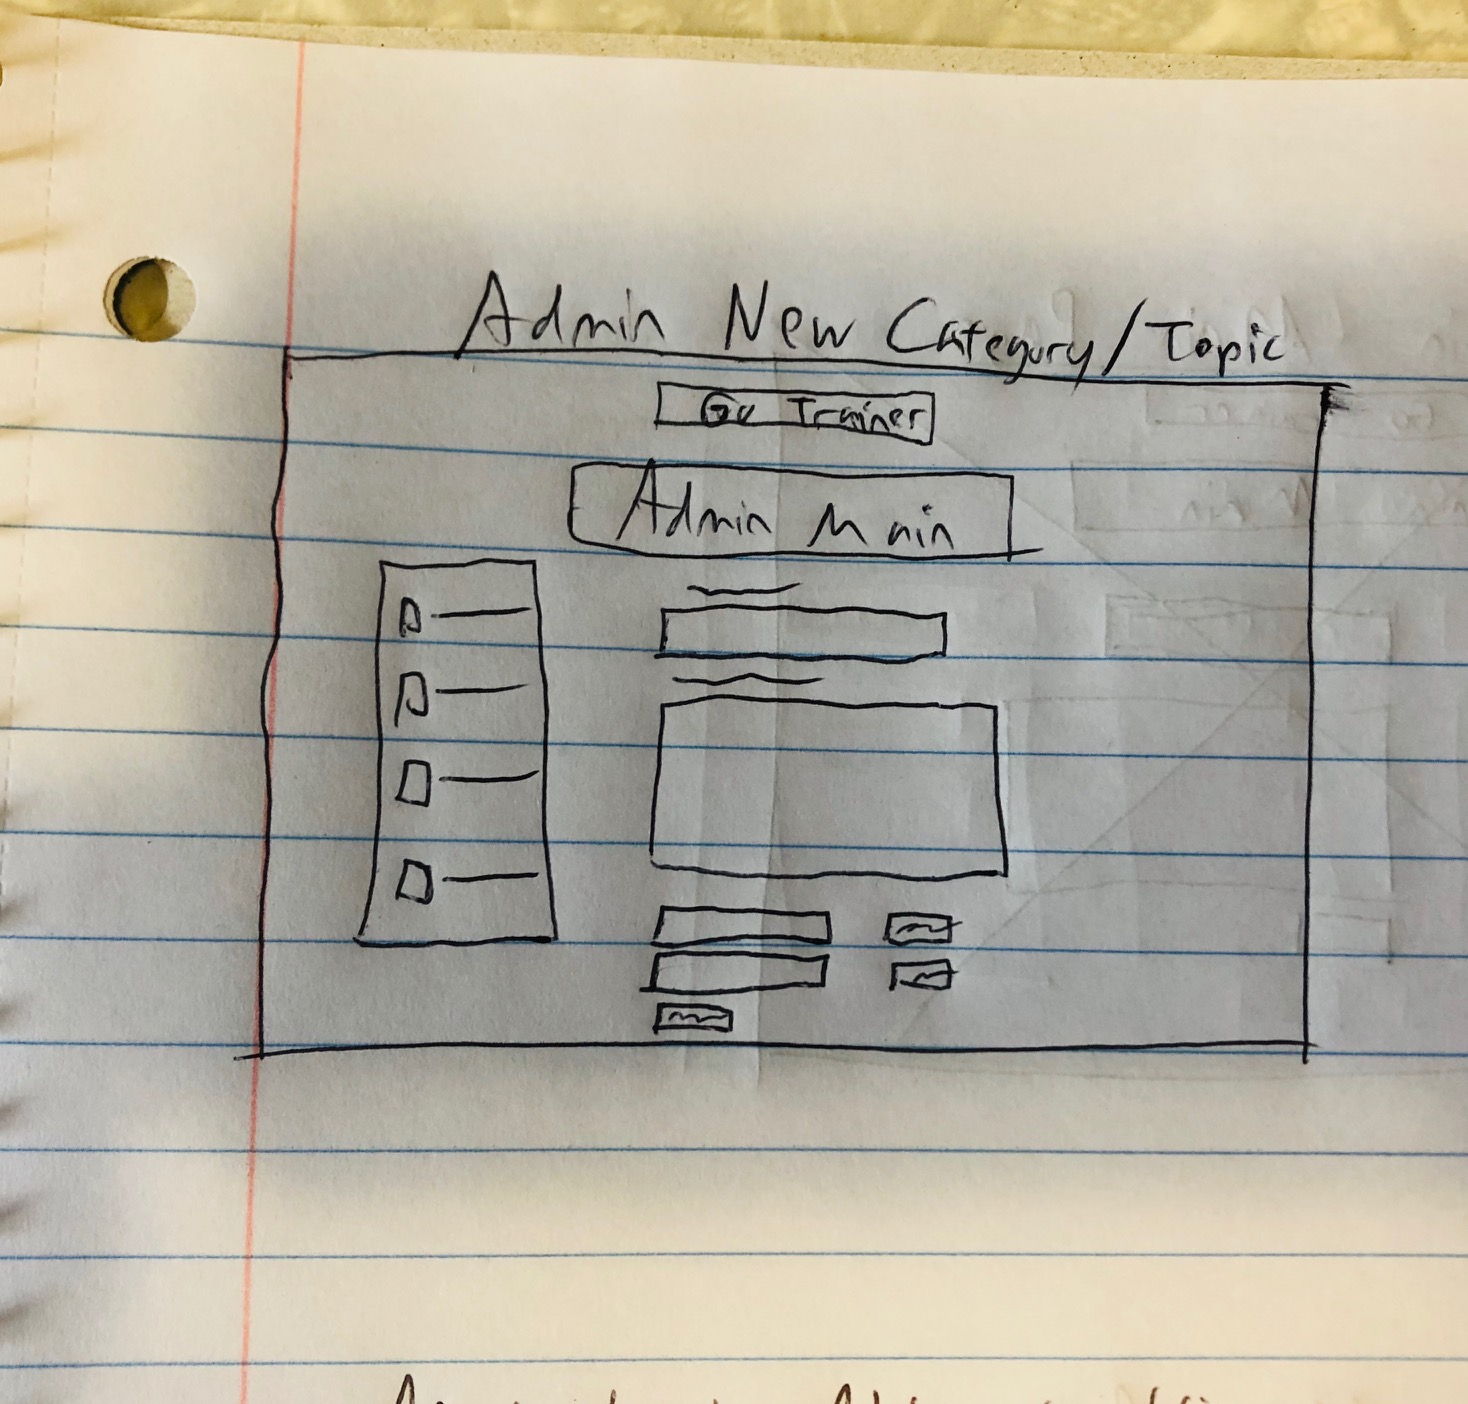 Admin New Category/Topic
Go Trainer
Admin Main